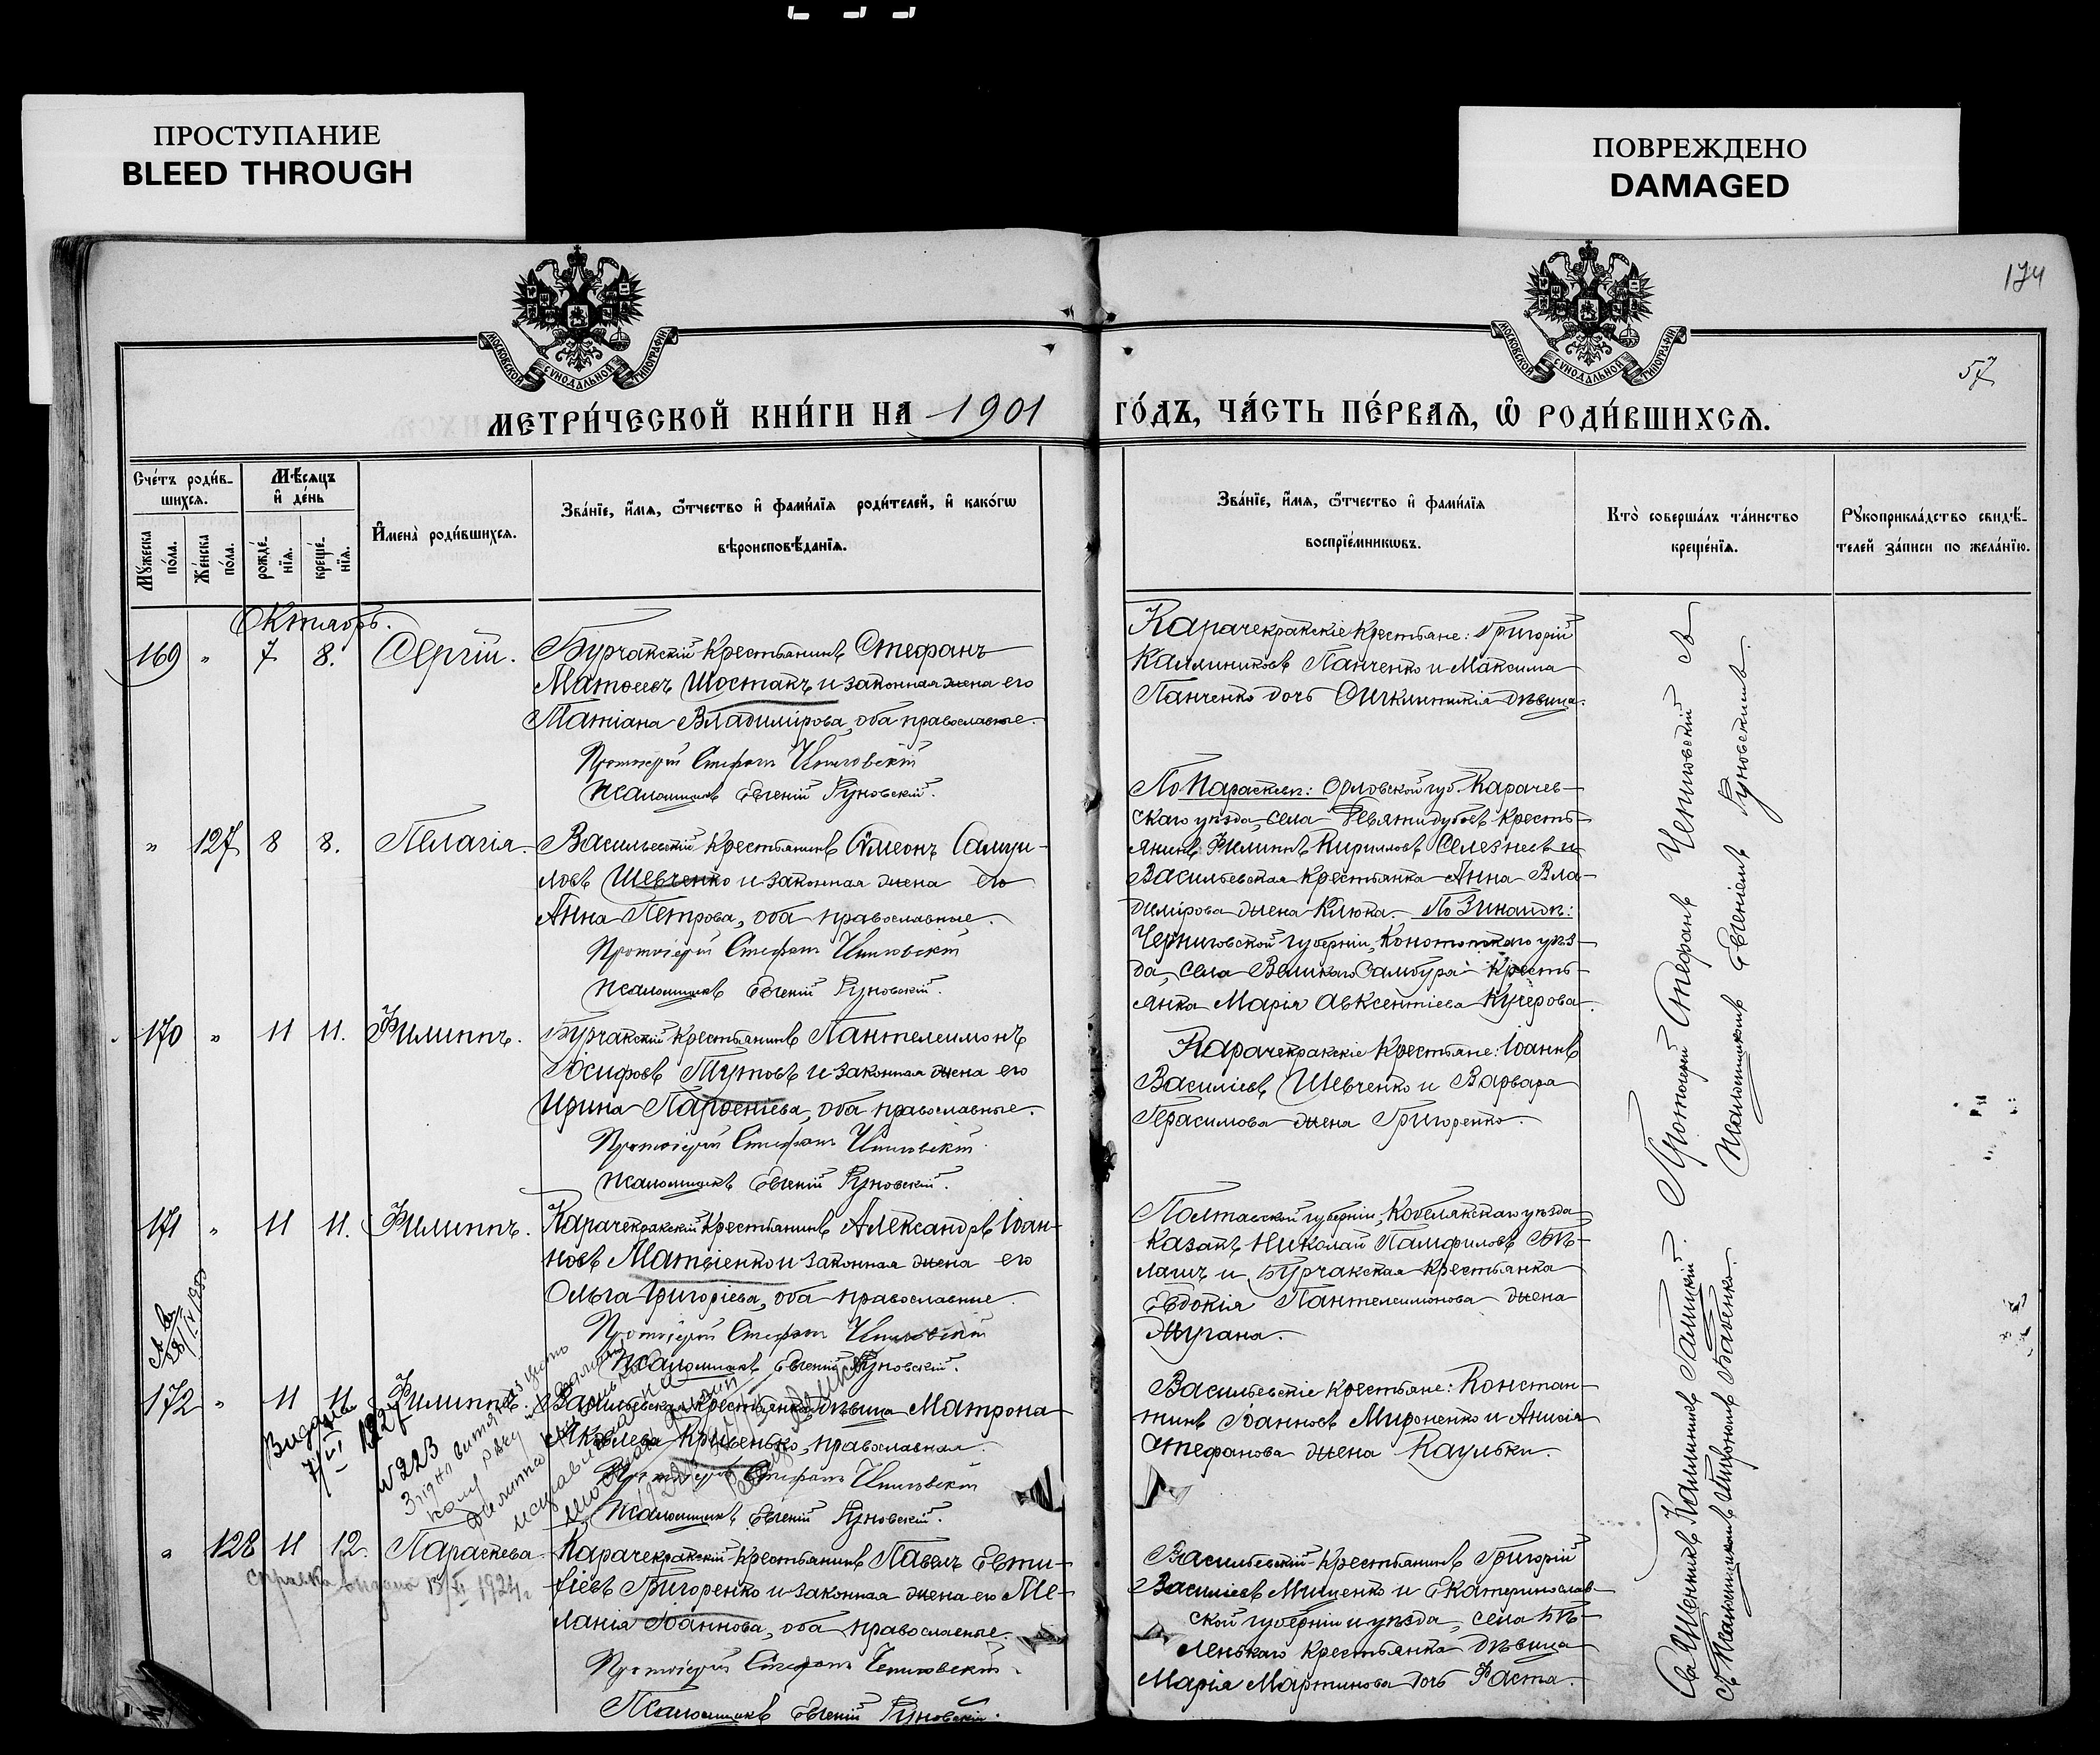 ПРОСТУПАНИЕ
BLEED THROUGH
ПОВРЕЖДЕНО
DAMAGED
174
57
МОСКОВСКОЙ СѴНОДАЛЬНОЙ ТИПОГРАФІИ
МОСКОВСКОЙ СѴНОДАЛЬНОЙ ТИПОГРАФІИ
МЕТРИ́ЧЕСКОЙ КНИ́ГИ НА 1901 ГО́ДЪ, ЧА́СТЬ ПЕ́РВАѦ, Ѡ҆ РОДИ́ВШИХСѦ.
Сче́тъ роди́в-
шихсѧ.
Мꙋ́жеска по́ла.
Же́нска по́ла.
Мѣ́сѧцъ
и҆ де́нь
рожде́-
нїѧ.
креще́-
нїѧ.
И҆мена̀ роди́вшихсѧ.
Зва́нїе, и҆́мѧ, ѻ҆́тчество и҆ фами́лїѧ роди́телей, и҆ како́гѡ
вѣроисповѣ́данїѧ.
Зва́нїе, и҆́мѧ, ѻ҆́тчество и҆ фами́лїѧ
воспрїе́мникѡвъ.
Кто̀ соверша́лъ та́инство
креще́нїѧ.
Рꙋкоприкла́дство свидѣ́-
телей за́писи по жела́нїю.
Октябрь.
169 " 7 8. Сергій.
Бурчакскій крестьянинъ Стефанъ
Матѳеевъ Шостакъ и законная жена его
Татіана Владимірова, оба православные.
Протоіерей Стефанъ Чепиговскій
Псаломщикъ Евгеній Руновскій.
Карачекракскіе крестьяне: Григорій
Каллиниковъ Панченко и Максима
Панченко дочь дѣвица.
" 127 8 8. Пелагія.
Васильевскій крестьянинъ Симеонъ Самуи-
ловъ Шевченко и законная жена его
Анна Петрова, оба православные.
Протоіерей Стефанъ Чепиговскій
Псаломщикъ Евгеній Руновскій.
По Параскевѣ: Орловской губ. Карачев-
скаго уѣзда, села Девяти дубовъ кресть-
янинъ Филиппъ Кирилловъ Селезневъ и
Васильевская крестьянка Анна Вла-
димірова жена Клюка. По Зинаидѣ:
Черниговской губерніи, Конотопскаго уѣз-
да, села Великаго Самбура кресть-
янка Марія Авксентіева Кучерова.
170 " 11 11. Филиппъ.
Бурчакскій крестьянинъ Пантелеимонъ
Іосифовъ Тутовъ и законная жена его
Ирина Парѳеніева, оба православные.
Протоіерей Стефанъ Чепиговскій
Псаломщикъ Евгеній Руновскій.
Карачекракскіе крестьяне: Іоаннъ
Василіевъ Шевченко и Варвара
Герасимова жена Григоренко.
171 " 11 11. Филиппъ.
Карачекракскій крестьянинъ Александръ Іоан-
новъ Матвіенко и законная жена его
Ольга Григоріева, оба православные.
Протоіерей Стефанъ Чепиговскій
Псаломщикъ Евгеній Руновскій.
Полтавской губерніи, Кобелякскаго уѣзда
казакъ Николай Памфиловъ Бѣ-
лашъ и Бурчакская крестьянка
Евдокія Пантелеимонова жена
Жугана.
172 " 11 11. Филиппъ.
Васильевская крестьянка дѣвица Матрона
Яковлева Кривенько, православная.
Протоіерей Стефанъ Чепиговскій
Псаломщикъ Евгеній Руновскій.
Васильевскіе крестьяне: Констан-
тинъ Іоанновъ Мироненко и Анисія
Стефанова жена Каульки.
7/VI 1927
N 223
" 128 11 12. Параскева.
Карачекракскій крестьянинъ Павелъ Евти-
хіевъ Григоренко и законная жена его Ме-
ланія Іоаннова, оба православные.
Протоіерей Стефанъ Чепиговскій.
Псаломщикъ Евгеній Руновскій.
справка выдана 1924 г
Васильевскій крестьянинъ Григорій
Василіевъ Мищенко и Екатеринослав-
ской губерніи и уѣзда, села Бѣ-
ленькаго крестьянка дѣвица
Марія Мартинова дочь Фаста.
Протоіерей Стефанъ Чепиговскій съ
Псаломщикомъ Евгеніемъ Руновскимъ.
Священникъ Каллиникъ Галицкій
съ Псаломщикомъ Бабенко.